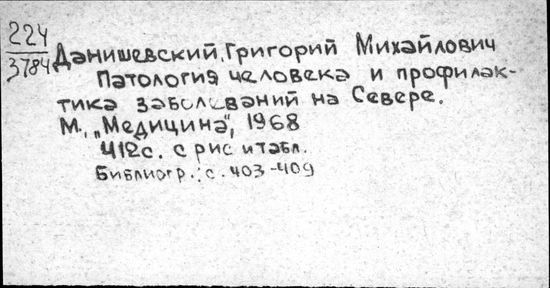 224
3784
Данишевский, Григорий Михайлович
Патология человека и профилак-
тика заболеваний на Севере.
М., „Медицина", 1968
412с. с рис и табл.
Библиогр.: с. 403-409